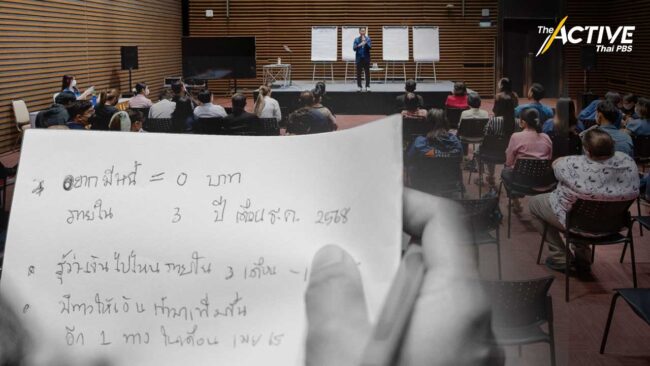 The
ACTIVE
Thai PBS
* อยากมีหนี้ = 0 บาท
ภายใน 3 ปี เดือน ธ.ค. 2568
รู้ว่าเงินไปไหน ภายใน 3 เดือน -
มีทางให้เงินเข้ามาเพิ่มขึ้น
อีก 1 ทาง ในเดือน เมย 65